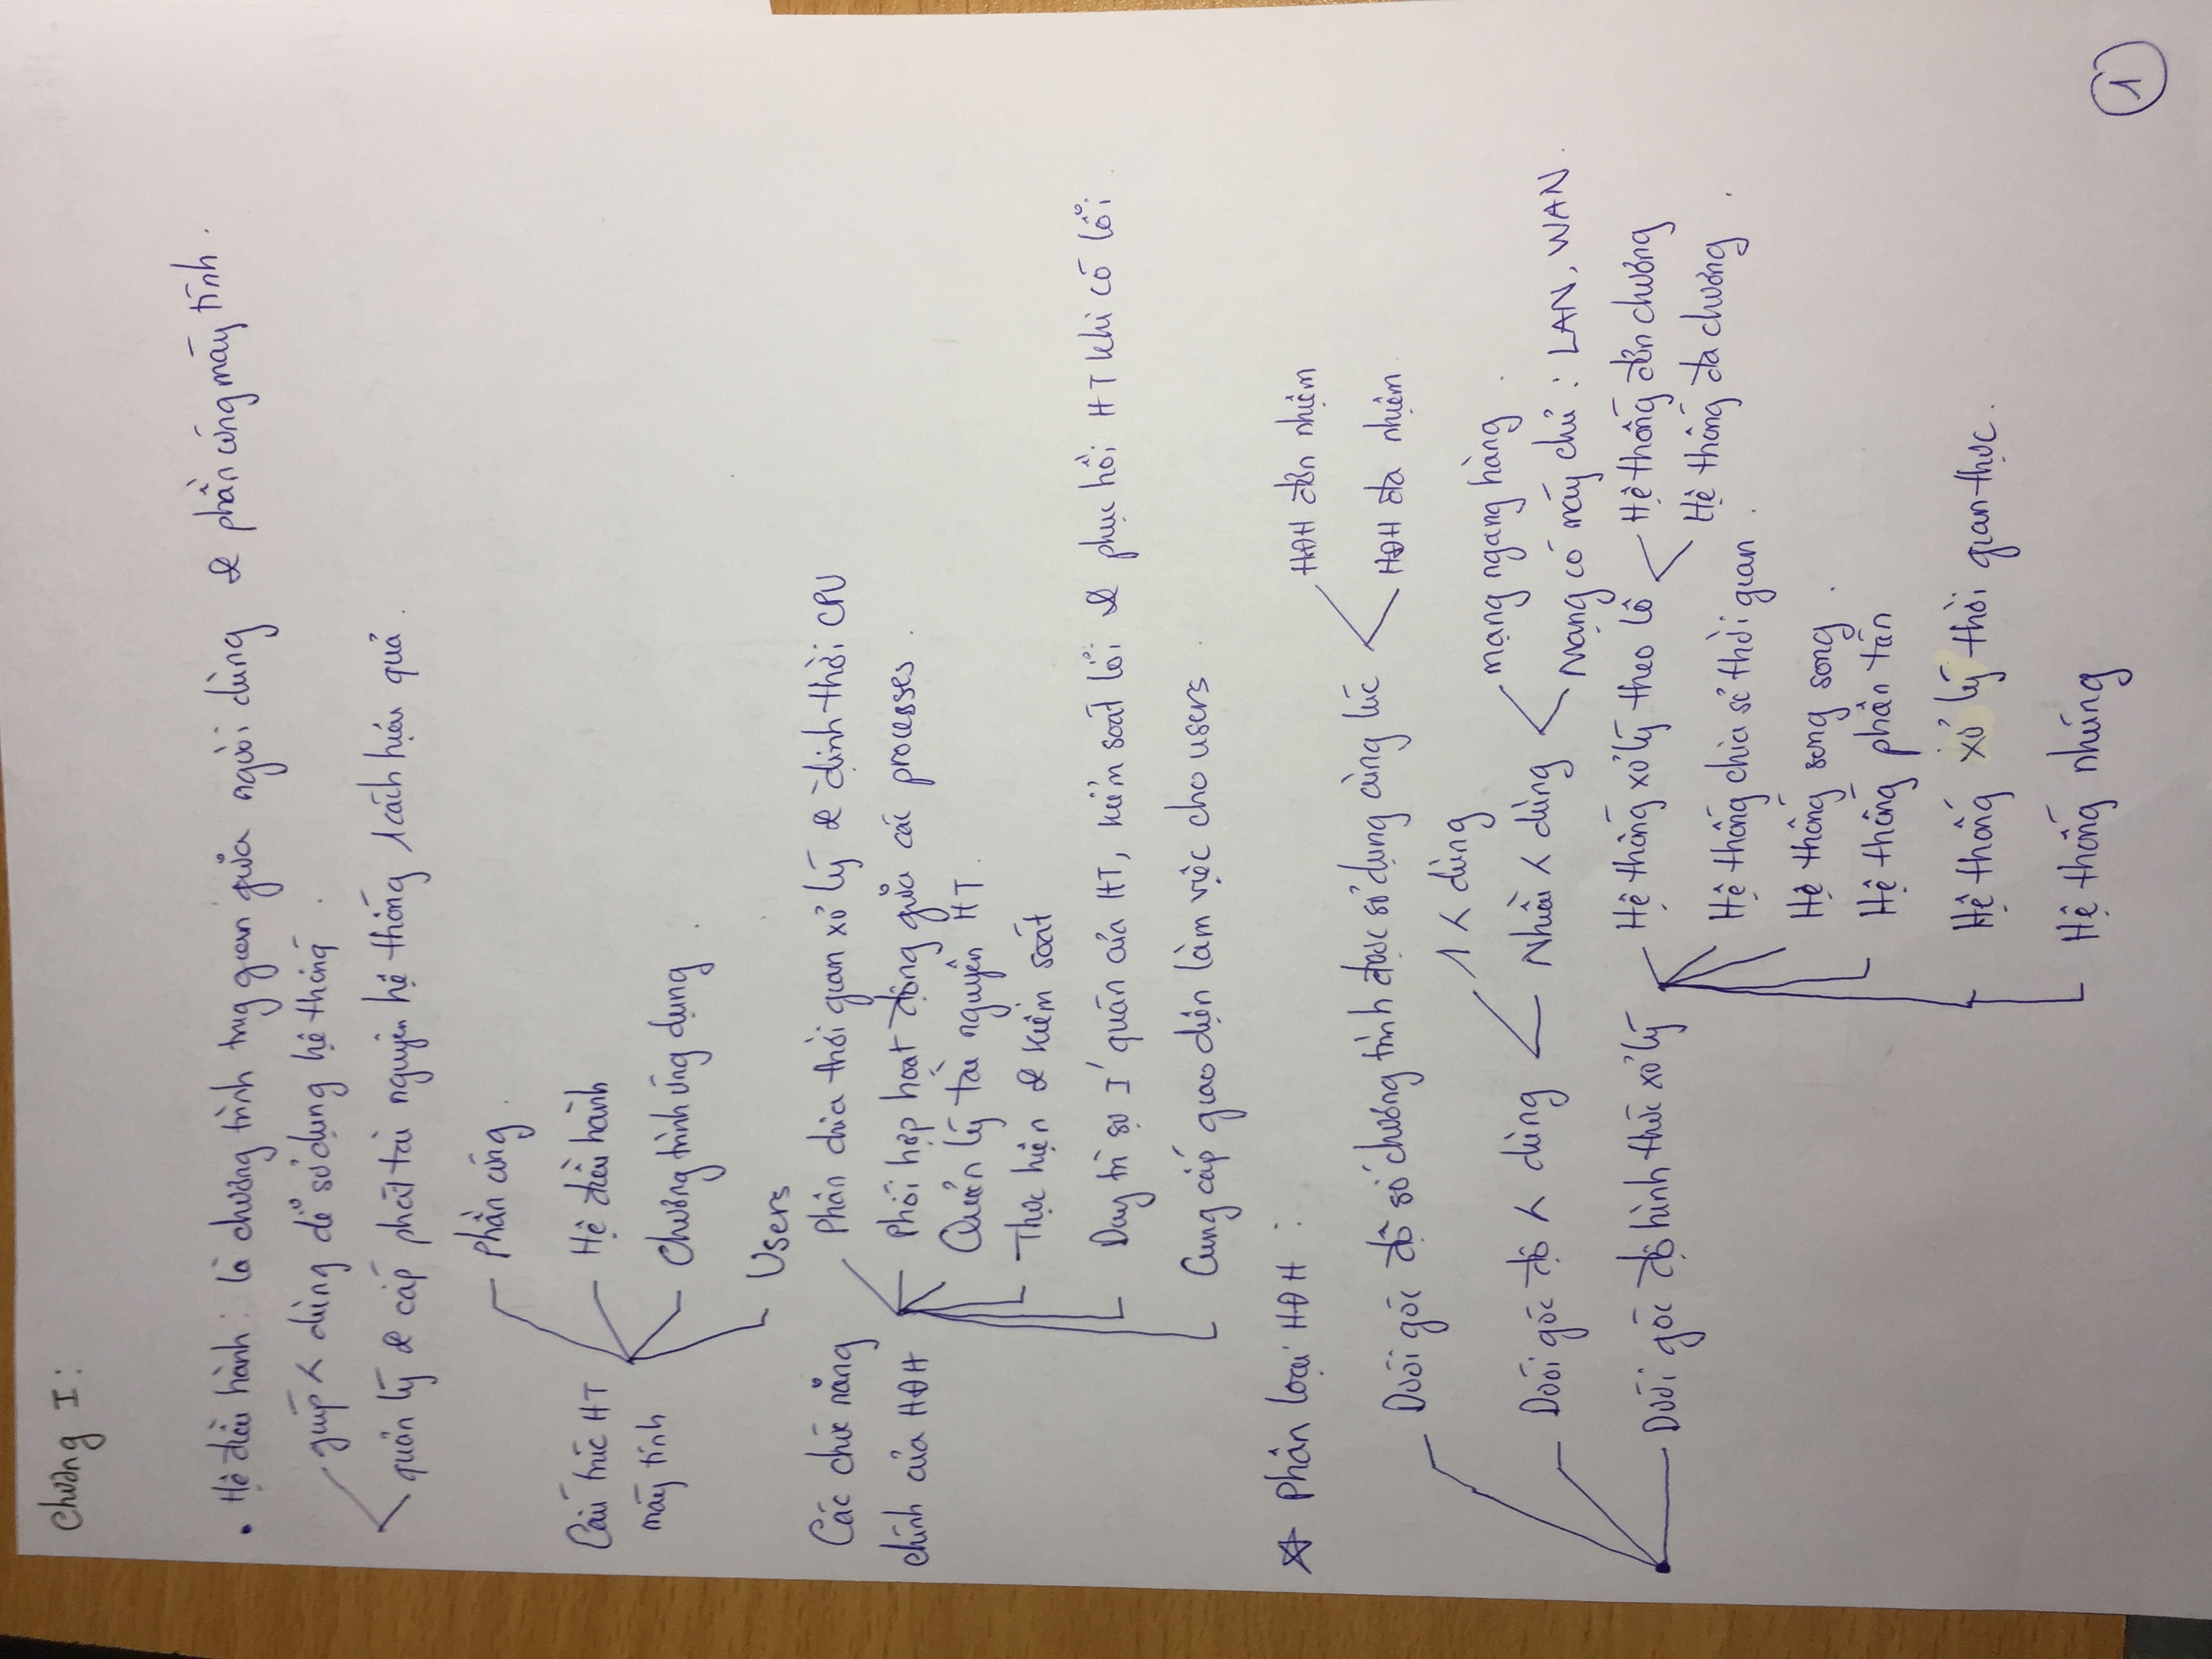 Chương I:
• Hệ điều hành: là chương trình trug gian giữa người dùng & phần cứng máy tính.
giúp < dùng dễ sử dụng hệ thống.
quản lý & cấp phát tài nguyên hệ thống 1 cách hiệu quả.
Phần cứng.
Cấu trúc HT
máy tính
Hệ điều hành
Chương trình ứng dụng.
Users
Các chức năng
chính của HĐH
Phân chia thời gian xử lý & định thời CPU
Phối hợp hoạt động giữa các processes.
Quản lý tài nguyên HT.
Thực hiện & kiểm soát
Duy trì sự I' quán của HT, kiểm soát lỗi & phục hồi HT khi có lỗi.
Cung cấp giao diện làm việc cho users.
☆ Phân loại HĐH:
Dưới góc độ số chương trình được sử dụng cùng lúc
HĐH đơn nhiệm
HĐH đa nhiệm
Dưới góc độ < dùng
1 < dùng
Nhiều < dùng
mạng ngang hàng.
Mạng có máy chủ: LAN, WAN.
Dưới góc độ hình thức xử lý
Hệ thống xử lý theo lô
Hệ thống đơn chương
Hệ thống đa chương.
Hệ thống chia sẻ thời gian.
Hệ thống song song.
Hệ thống phân tán
Hệ thống xử lý thời gian thực.
Hệ thống nhúng
1